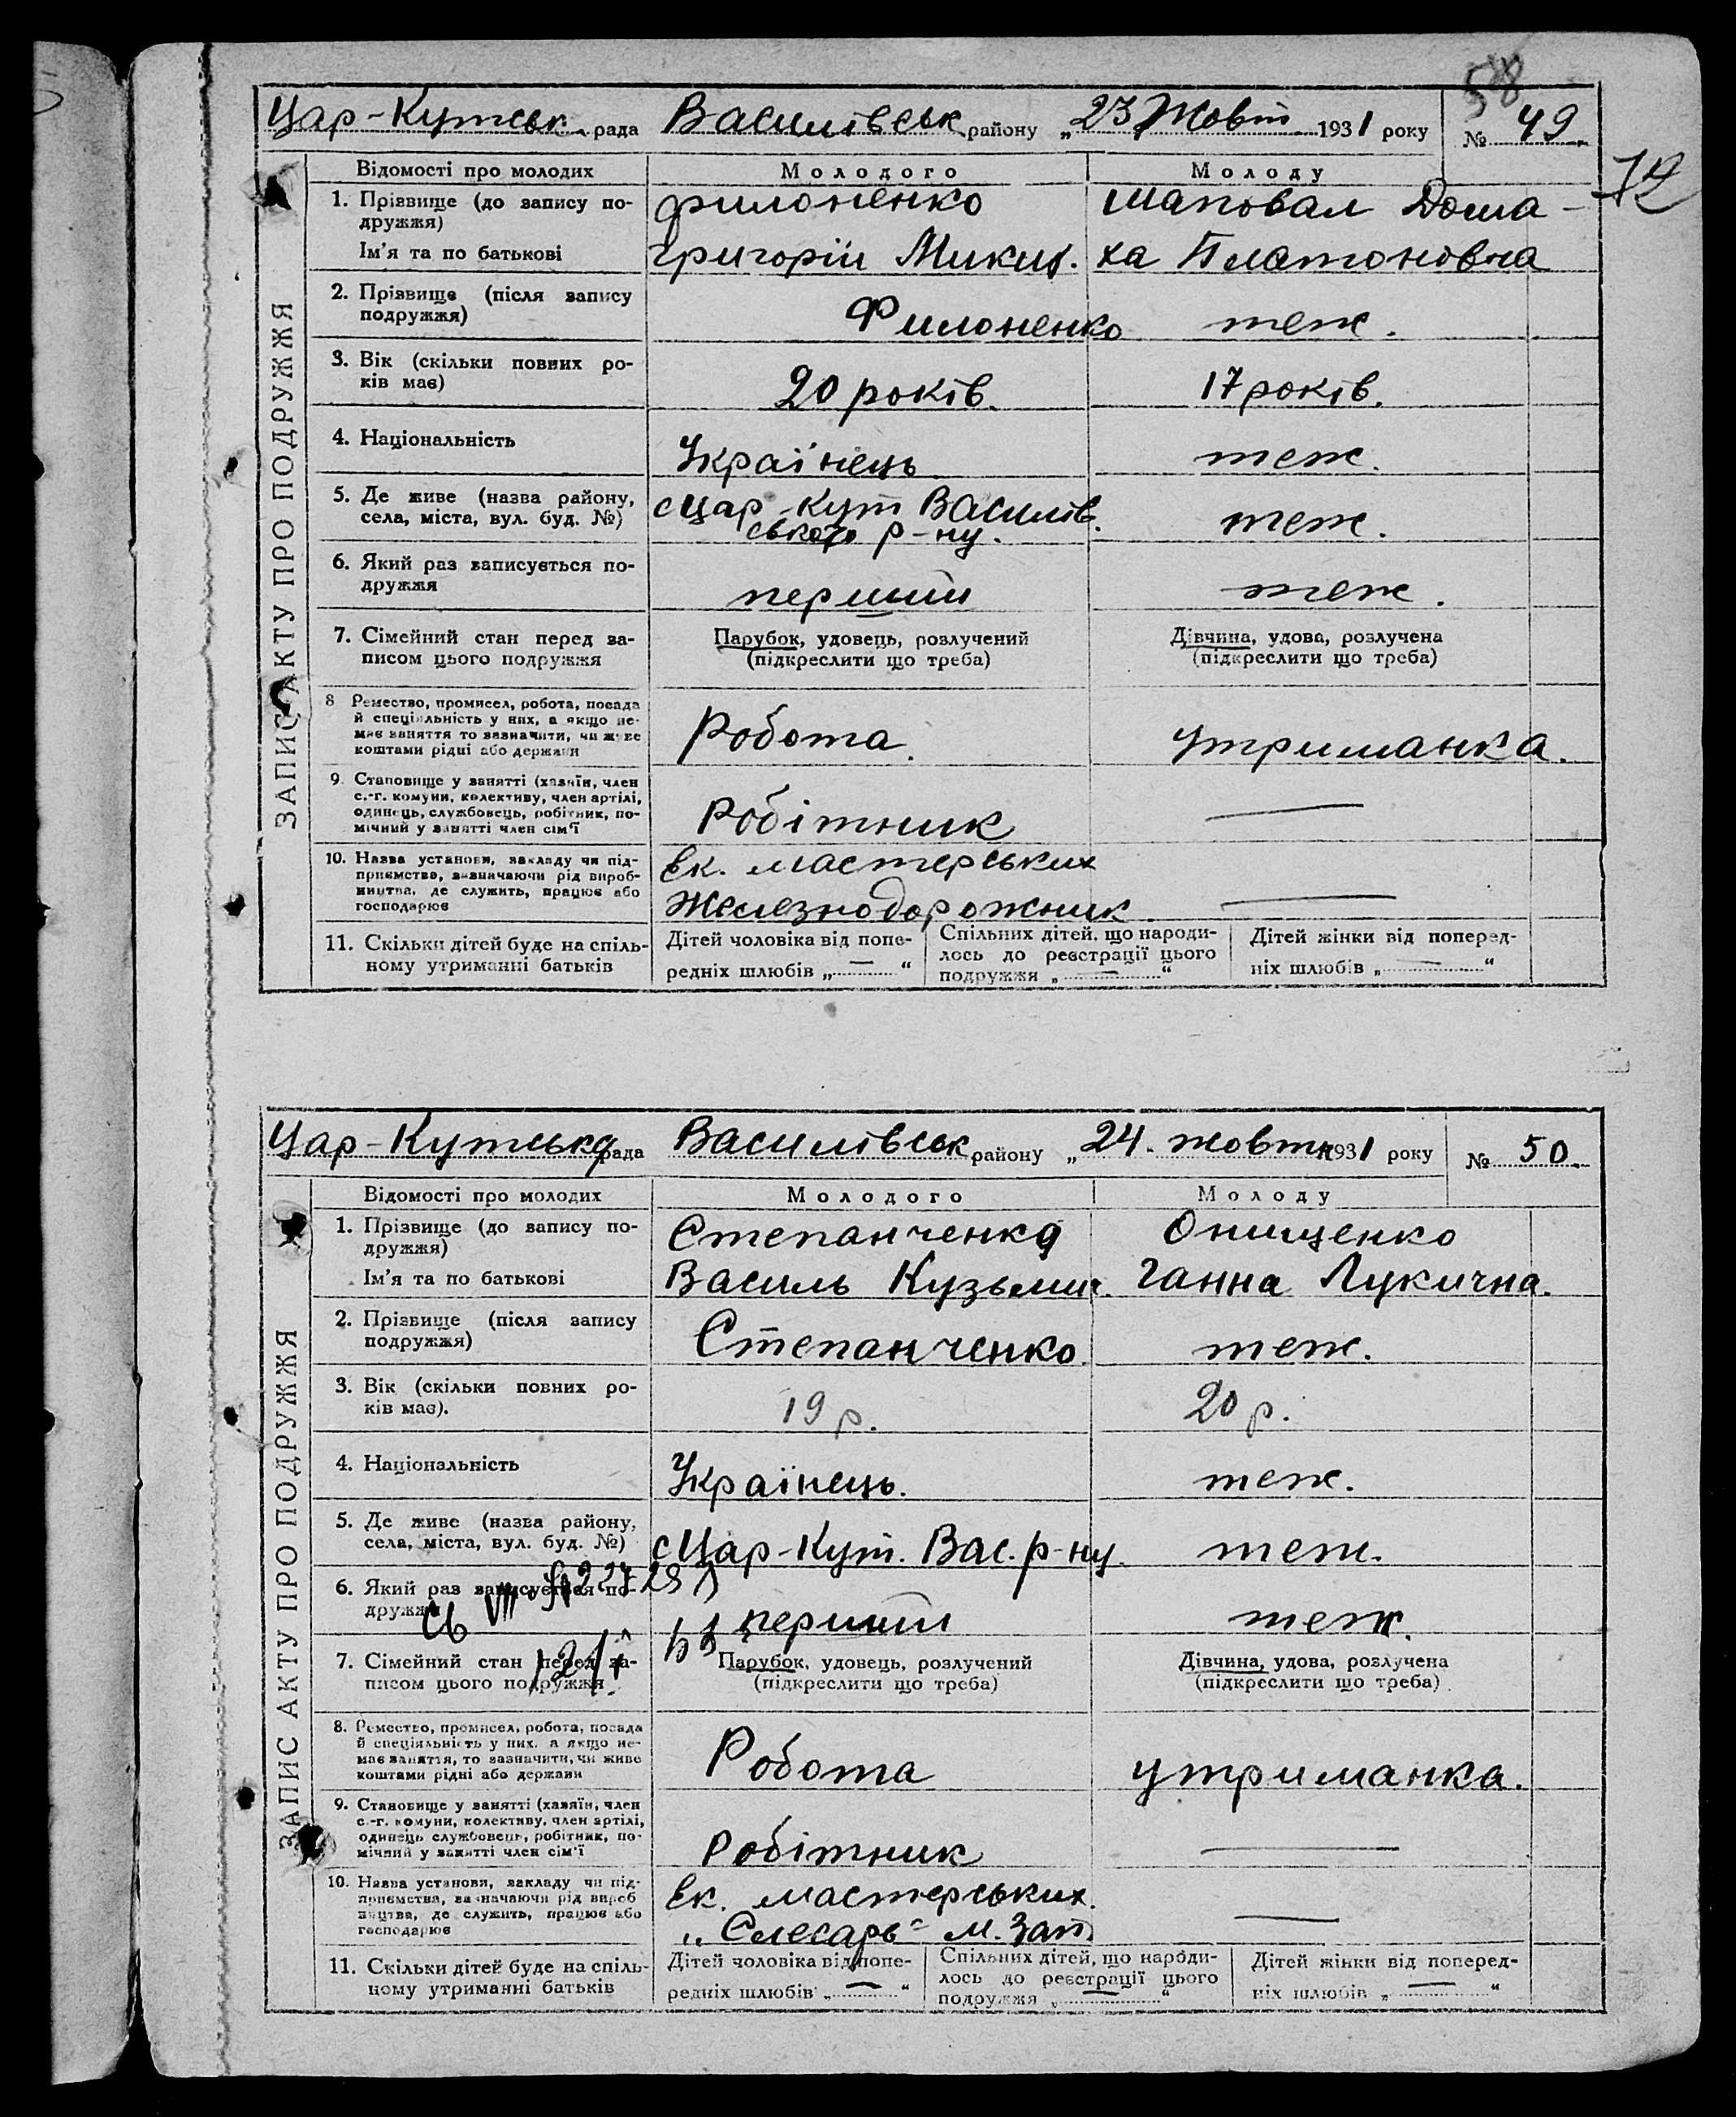 58
Цар-Кутськ. рада Василівськ району „23 Жовт 1931 року № 49.
72
ЗАПИС АКТУ ПРО ПОДРУЖЖЯ
Відомості про молодих Молодого Молоду
1. Прізвище (до запису по- Филоненко Шаповал Дома-
дружжя)
Ім'я та по батькові Григорій Микит. ха Платоновна
2. Прізвище (після запису
подружжя) Филоненко теж.
3. Вік (скільки повних ро-
ків має) 20 років. 17 років.
4. Національність Украінець теж.
5. Де живе (назва району, с Цар-Кут Василів.
села, міста, вул. буд. №) ського р-ну. теж.
6. Який раз записується по-
дружжя перший теж.
7. Сімейний стан перед за- Парубок, удовець, розлучений Дівчина, удова, розлучена
писом цього подружжя (підкреслити що треба) (підкреслити що треба)
8 Ремество, промисел, робота, посада
й спеціяльність у них, а якщо не-
має заняття то зазначити, чи живе Робота. утриманка.
коштами рідні або держави
9. Становище у занятті (хазяїн, член
с.-г. комуни, колективу, член артілі,
одинець, службовець, робітник, по- Робітник —
мічний у занятті член сім'ї
10. Назва установи, закладу чи під- вк. мастерських
приємства, зазначаючи рід вироб-
ництва, де служить, працює або Железнодорожник. —
господарює
11. Скільки дітей буде на спіль- Дітей чоловіка від попе- Спільних дітей, що народи- Дітей жінки від поперед-
ному утриманні батьків редніх шлюбів „—“ лось до реєстрації цього ніх шлюбів „—“
подружжя „—“
Цар-Кутська рада Василівськ району „24. жовтн 1931 року № 50.
ЗАПИС АКТУ ПРО ПОДРУЖЖЯ
Відомості про молодих Молодого Молоду
1. Прізвище (до запису по- Степанченко Онищенко
дружжя)
Ім'я та по батькові Василь Кузьмич. Ганна Лукична.
2. Прізвище (після запису
подружжя) Степанченко теж.
3. Вік (скільки повних ро-
ків має). 19 р. 20 р.
4. Національність Українець. теж.
5. Де живе (назва району,
села, міста, вул. буд. №) с Цар-Кут. Вас. р-ну. теж.
6. Який раз записується по-
дружжя перший теж.
7. Сімейний стан перед за- Парубок, удовець, розлучений Дівчина, удова, розлучена
писом цього подружжя (підкреслити що треба) (підкреслити що треба)
8. Ремество, промисел, робота, посада
й спеціяльність у них, а якщо не-
має заняття, то зазначити, чи живе Робота утриманка.
коштами рідні або держави
9. Становище у занятті (хазяїн, член
с.-г. комуни, колективу, член артілі,
одинець службовець, робітник, по- Робітник —
мічний у занятті член сім'ї
10. Назва установи, закладу чи під- вк. мастерських.
приємства, зазначаючи рід вироб
ництва, де служить, працює або „Слесарь“ м. Зап. —
господарює
11. Скільки дітей буде на спіль- Дітей чоловіка від попе- Спільних дітей, що народи- Дітей жінки від поперед-
ному утриманні батьків редніх шлюбів „—“ лось до реєстрації цього ніх шлюбів „—“
подружжя „—“